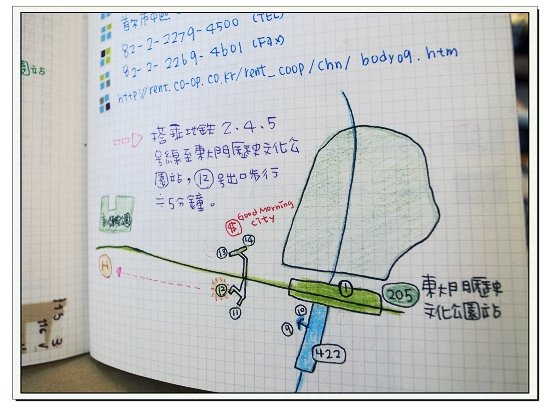 首尔市中區
82-2-2279-4500 (TEL)
82-2-2269-4601 (FAX)
http://rent.co-op.co.kr/rent_coop/chn/body09.htm
園站
搭乘地鉄2.4.5
號線至東大門歷史文化公
園站,⑫號出口步行
5分鐘。
$ Good Morning
city
⑬ ⑭
H
⑫
⑪
①
205 東大門歷史
文化公園站
⑩
⑨
422